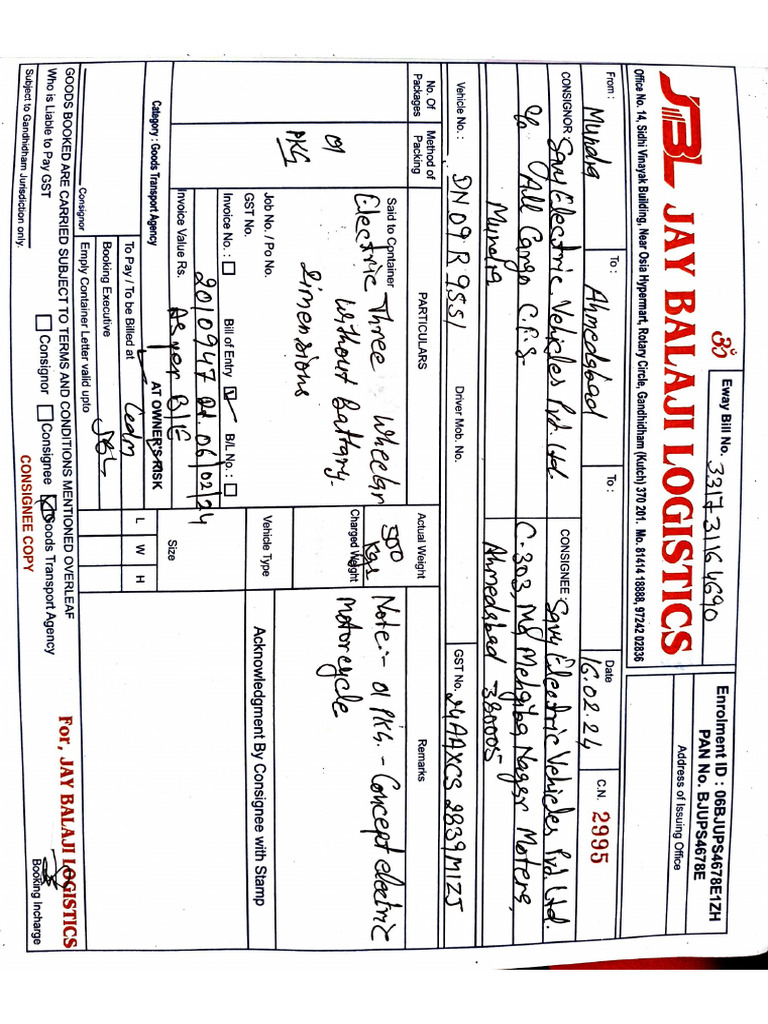 ॐ
Eway Bill No. 331731164690
Enrolment ID : 06BJUPS4678E1ZH
PAN No. BJUPS4678E
JBL JAY BALAJI LOGISTICS
Address of Issuing Office
Office No. 14, Sidhi Vinayak Building, Near Osia Hypermart, Rotary Circle, Gandhidham (Kutch) 370 201. Mo. 81414 18888, 97242 02836
From : Mundra To : Ahmedabad To : Date 16.02.24 C.N. 2995
CONSIGNOR Savy Electric Vehicles Pvt. Ltd.
C/o All Cargo C.F.S
Mundra
CONSIGNEE : Savy Electric Vehicles Pvt. Ltd.
C-303, Mg Mehgiba Nager Moters,
Ahmedabad - 380005
Vehicle No. : DN 09 R 9551 Driver Mob. No. GST No. 24AAXCS2839M1ZJ
No. Of Packages Method of Packing PARTICULARS Actual Weight Remarks
01
PKG
Said to Container
Electric Three Wheeler
Without Battary
Dimensions
500
Kgs
Charged Weight
Note:- 01 PKG. - Concept electric
Motorcycle
Job No. / Po No.
GST No.
Invoice No. : Bill of Entry B/L No. :
2010947 dt. 06/02/24
Vehicle Type
Acknowledgment By Consignee with Stamp
Invoice Value Rs. As per B/E
Size
Catagory : Goods Transport Agency AT OWNER'S RISK
L W H
To Pay / To be Billed at
Booking Executive JBL
Emply Container Letter valid upto
Consignor
GOODS BOOKED ARE CARRIED SUBJECT TO TERMS AND CONDITIONS MENTIONED OVERLEAF
Who is Liable to Pay GST Consignor Consignee Goods Transport Agency
Subject to Gandhidham Jurisdiction only.
CONSIGNEE COPY
For, JAY BALAJI LOGISTICS
Booking Incharge